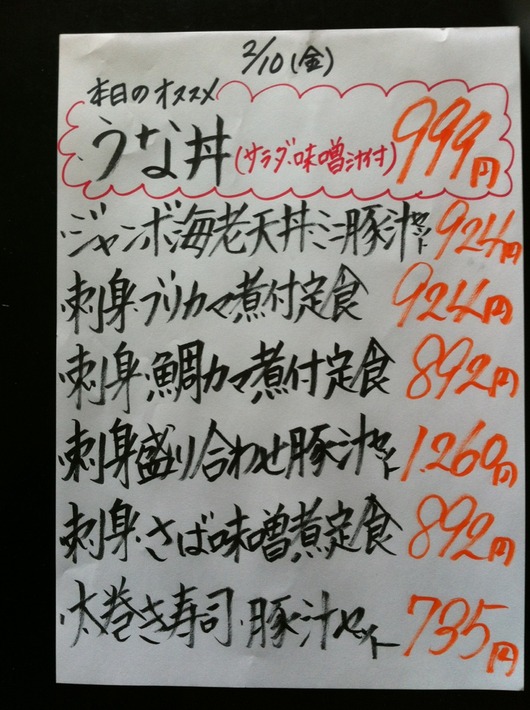 2/10(金)
本日のオススメ
うな丼(サラダ・味噌汁付)999円
ジャンボ海老天丼・ミニ豚汁セット924円
刺身・ブリカマ煮付定食924円
刺身・鯛カマ煮付定食892円
刺身盛り合わせ豚汁セット1.260円
刺身・さば味噌煮定食892円
太巻き寿司・豚汁セット735円